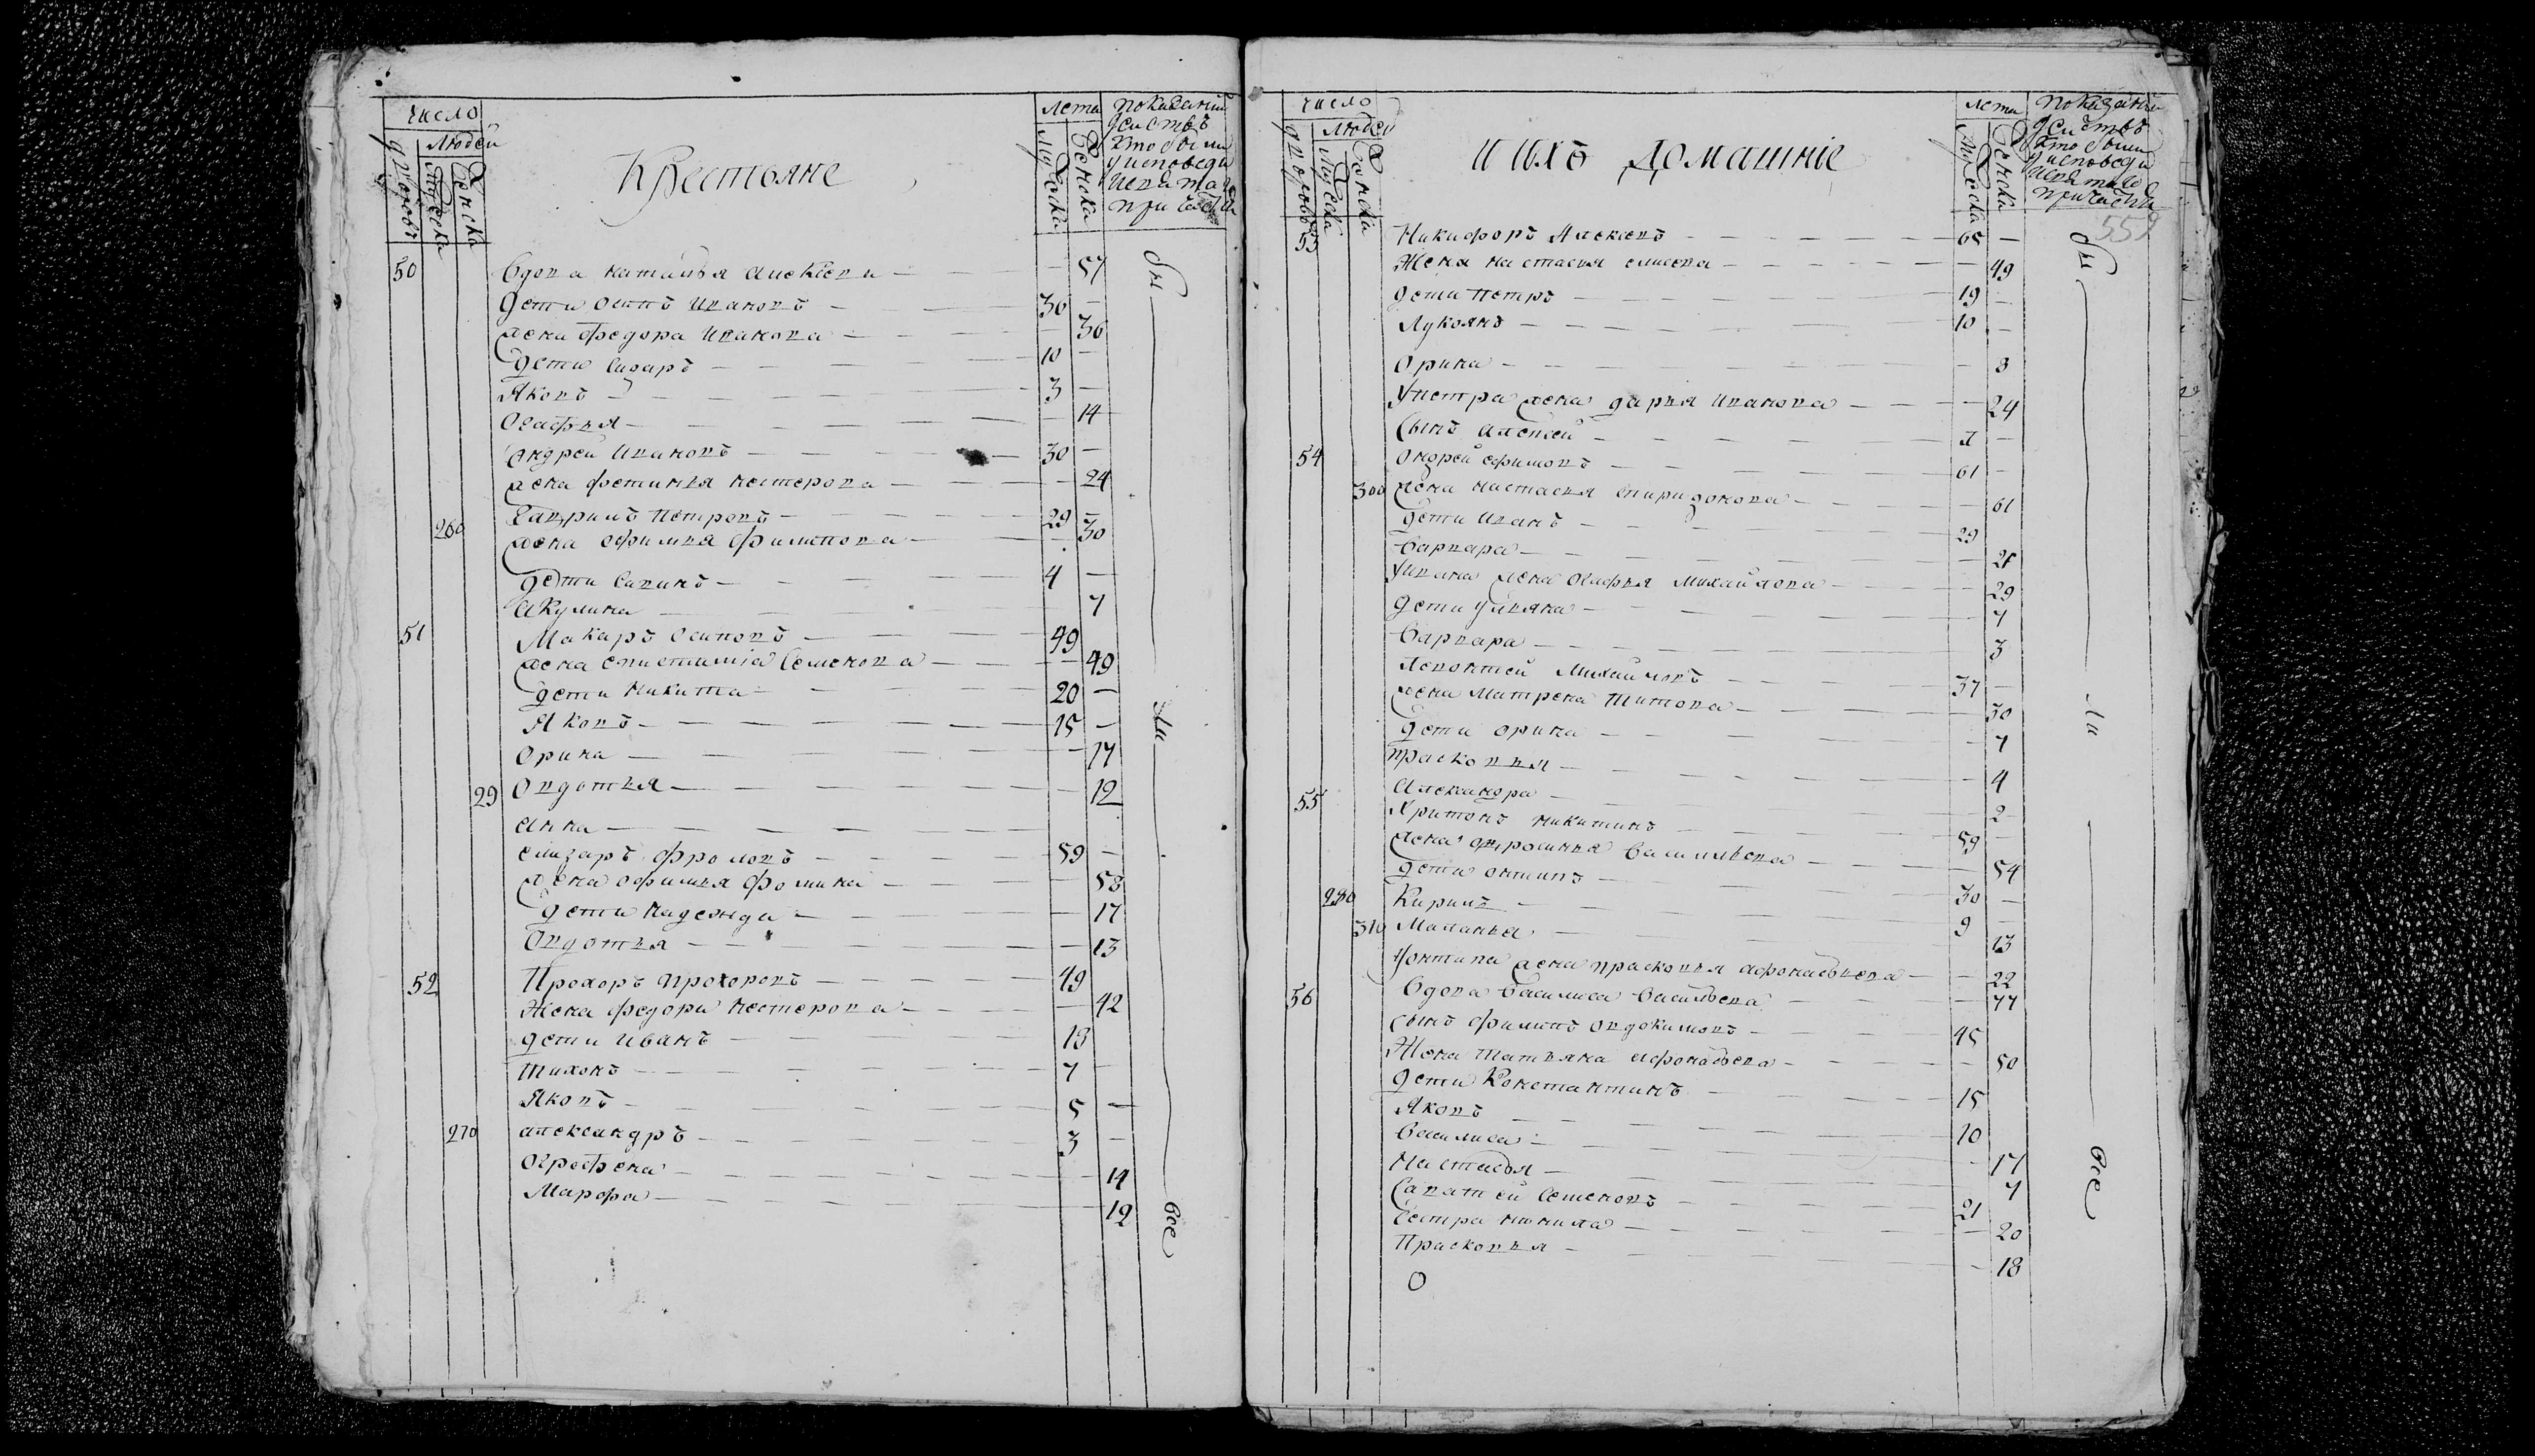 число
Людей
дворовъ
мужеска
женска
Крестьяне
Лета
мужеска
женска
показании
действъ
кто были
у исповеди
и святаго
причастия
50 Вдова наталья алексеева — 57
дети осипъ ивановъ — 30 —
жена федора иванова — 36
дети сидоръ — 10 —
Яковъ — 3 —
Огафья — 14
Андрей ивановъ — 30 —
жена фетинья нестерова — 24
Гаврилъ петровъ — 29 —
260 жена офимья филипова — 30
дети савинъ — 4 —
акулина — 7
51 Макаръ осиповъ — 49
жена епистимиа семенова — 49
дети никита — 20 —
Яковъ — 15 —
орина — 17
29 овдотья — 12
анна —
елизаръ фроловъ — 59 —
жена офимья фомина — 58
дети надежда — 17
Овдотья — 13
52 Прохоръ прохоровъ — 49
Жена федора нестерова — 42
дети иванъ — 18
тихонъ — 7 —
Яковъ — 5 —
270 александръ — 3 —
огрофена — 14
Марфа — 12
бы
ли
все
число
Людей
дворовъ
мужеска
женска
и ихъ домашніе
лета
мужеска
женска
показании
действъ
кто были
у исповеди
и святаго
причастия
559
53 Никифоръ Алексеевъ — 65 —
Жена настасья — 49
дети петръ — 19 —
Лукоянъ — 10 —
орина — 8
У петра жена дарья иванова — 24
сынъ алексей —
54 Андрей ефимовъ — 61 —
300 жена настасья спиридонова — 61
дети иванъ — 29
варвара —
У ивана жена огафья михайлова — 29
дети ульяна — 7
варвара — 3
леонтей михайловъ — 37 —
жена матрена титова — 30
дети орина — 7
прасковья — 4
александра — 2
55 Харитонъ никитинъ — 59 —
жена офросинья васильева — 54
дети онтипъ — 30 —
280 Кирилъ — 9 —
310 Маланья — 13
У онтипа жена прасковья афонасьева — 22
56 Вдова василиса васильева — 77
сынъ филипъ овдокимовъ — 45
Жена татьяна афонасьева — 50
дети константинъ — 15
Яковъ — 10
василиса — 17
настасья — 7
саватей семеновъ — 21
сестра ненила — 20
Прасковья — 18
бы
ли
все